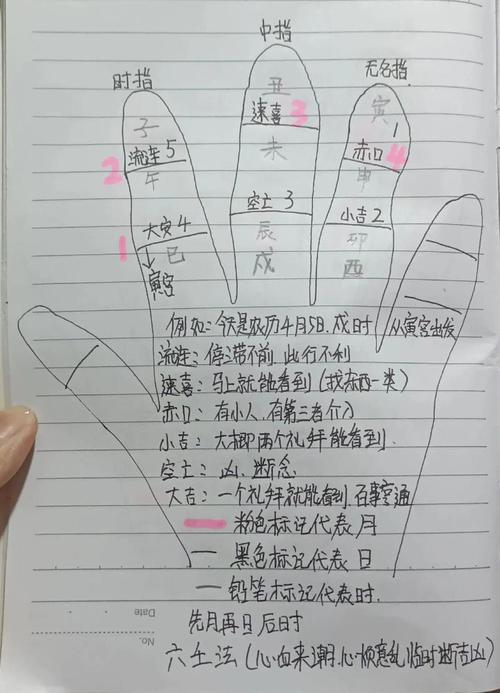 中指
时指
无名指
子
流连 5
2
午
大安 4
1
巳
寅宫
丑
速喜
3
未
空亡 3
辰
戌
寅
1
赤口
4
申
小吉 2
卯
酉
例如：今天是农历4月5日.戌时 从寅宫出发
流连：停滞不前 此行不利
速喜：马上就能看到(找东西一类)
赤口：有小人.有第三者介入
小吉：大概两个礼拜能看到.
空亡：凶.断念
大吉：一个礼拜就能看到 百事亨通
粉色标记代表月
黑色标记代表日
铅笔标记代表时.
先月再日后时
六壬法(心血来潮.心烦意乱临时断吉凶)
Date
No.